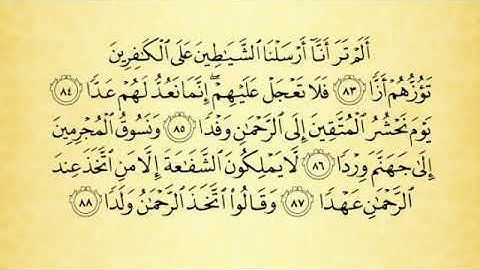 أَلَمْ تَرَ أَنَّآ أَرْسَلْنَا ٱلشَّيَٰطِينَ عَلَى ٱلْكَٰفِرِينَ
تَؤُزُّهُمْ أَزًّا ٨٣ فَلَا تَعْجَلْ عَلَيْهِمْ ۖ إِنَّمَا نَعُدُّ لَهُمْ عَدًّا ٨٤
يَوْمَ نَحْشُرُ ٱلْمُتَّقِينَ إِلَى ٱلرَّحْمَٰنِ وَفْدًا ٨٥ وَنَسُوقُ ٱلْمُجْرِمِينَ
إِلَىٰ جَهَنَّمَ وِرْدًا ٨٦ لَّا يَمْلِكُونَ ٱلشَّفَٰعَةَ إِلَّا مَنِ ٱتَّخَذَ عِندَ
ٱلرَّحْمَٰنِ عَهْدًا ٨٧ وَقَالُوا۟ ٱتَّخَذَ ٱلرَّحْمَٰنُ وَلَدًا ٨٨